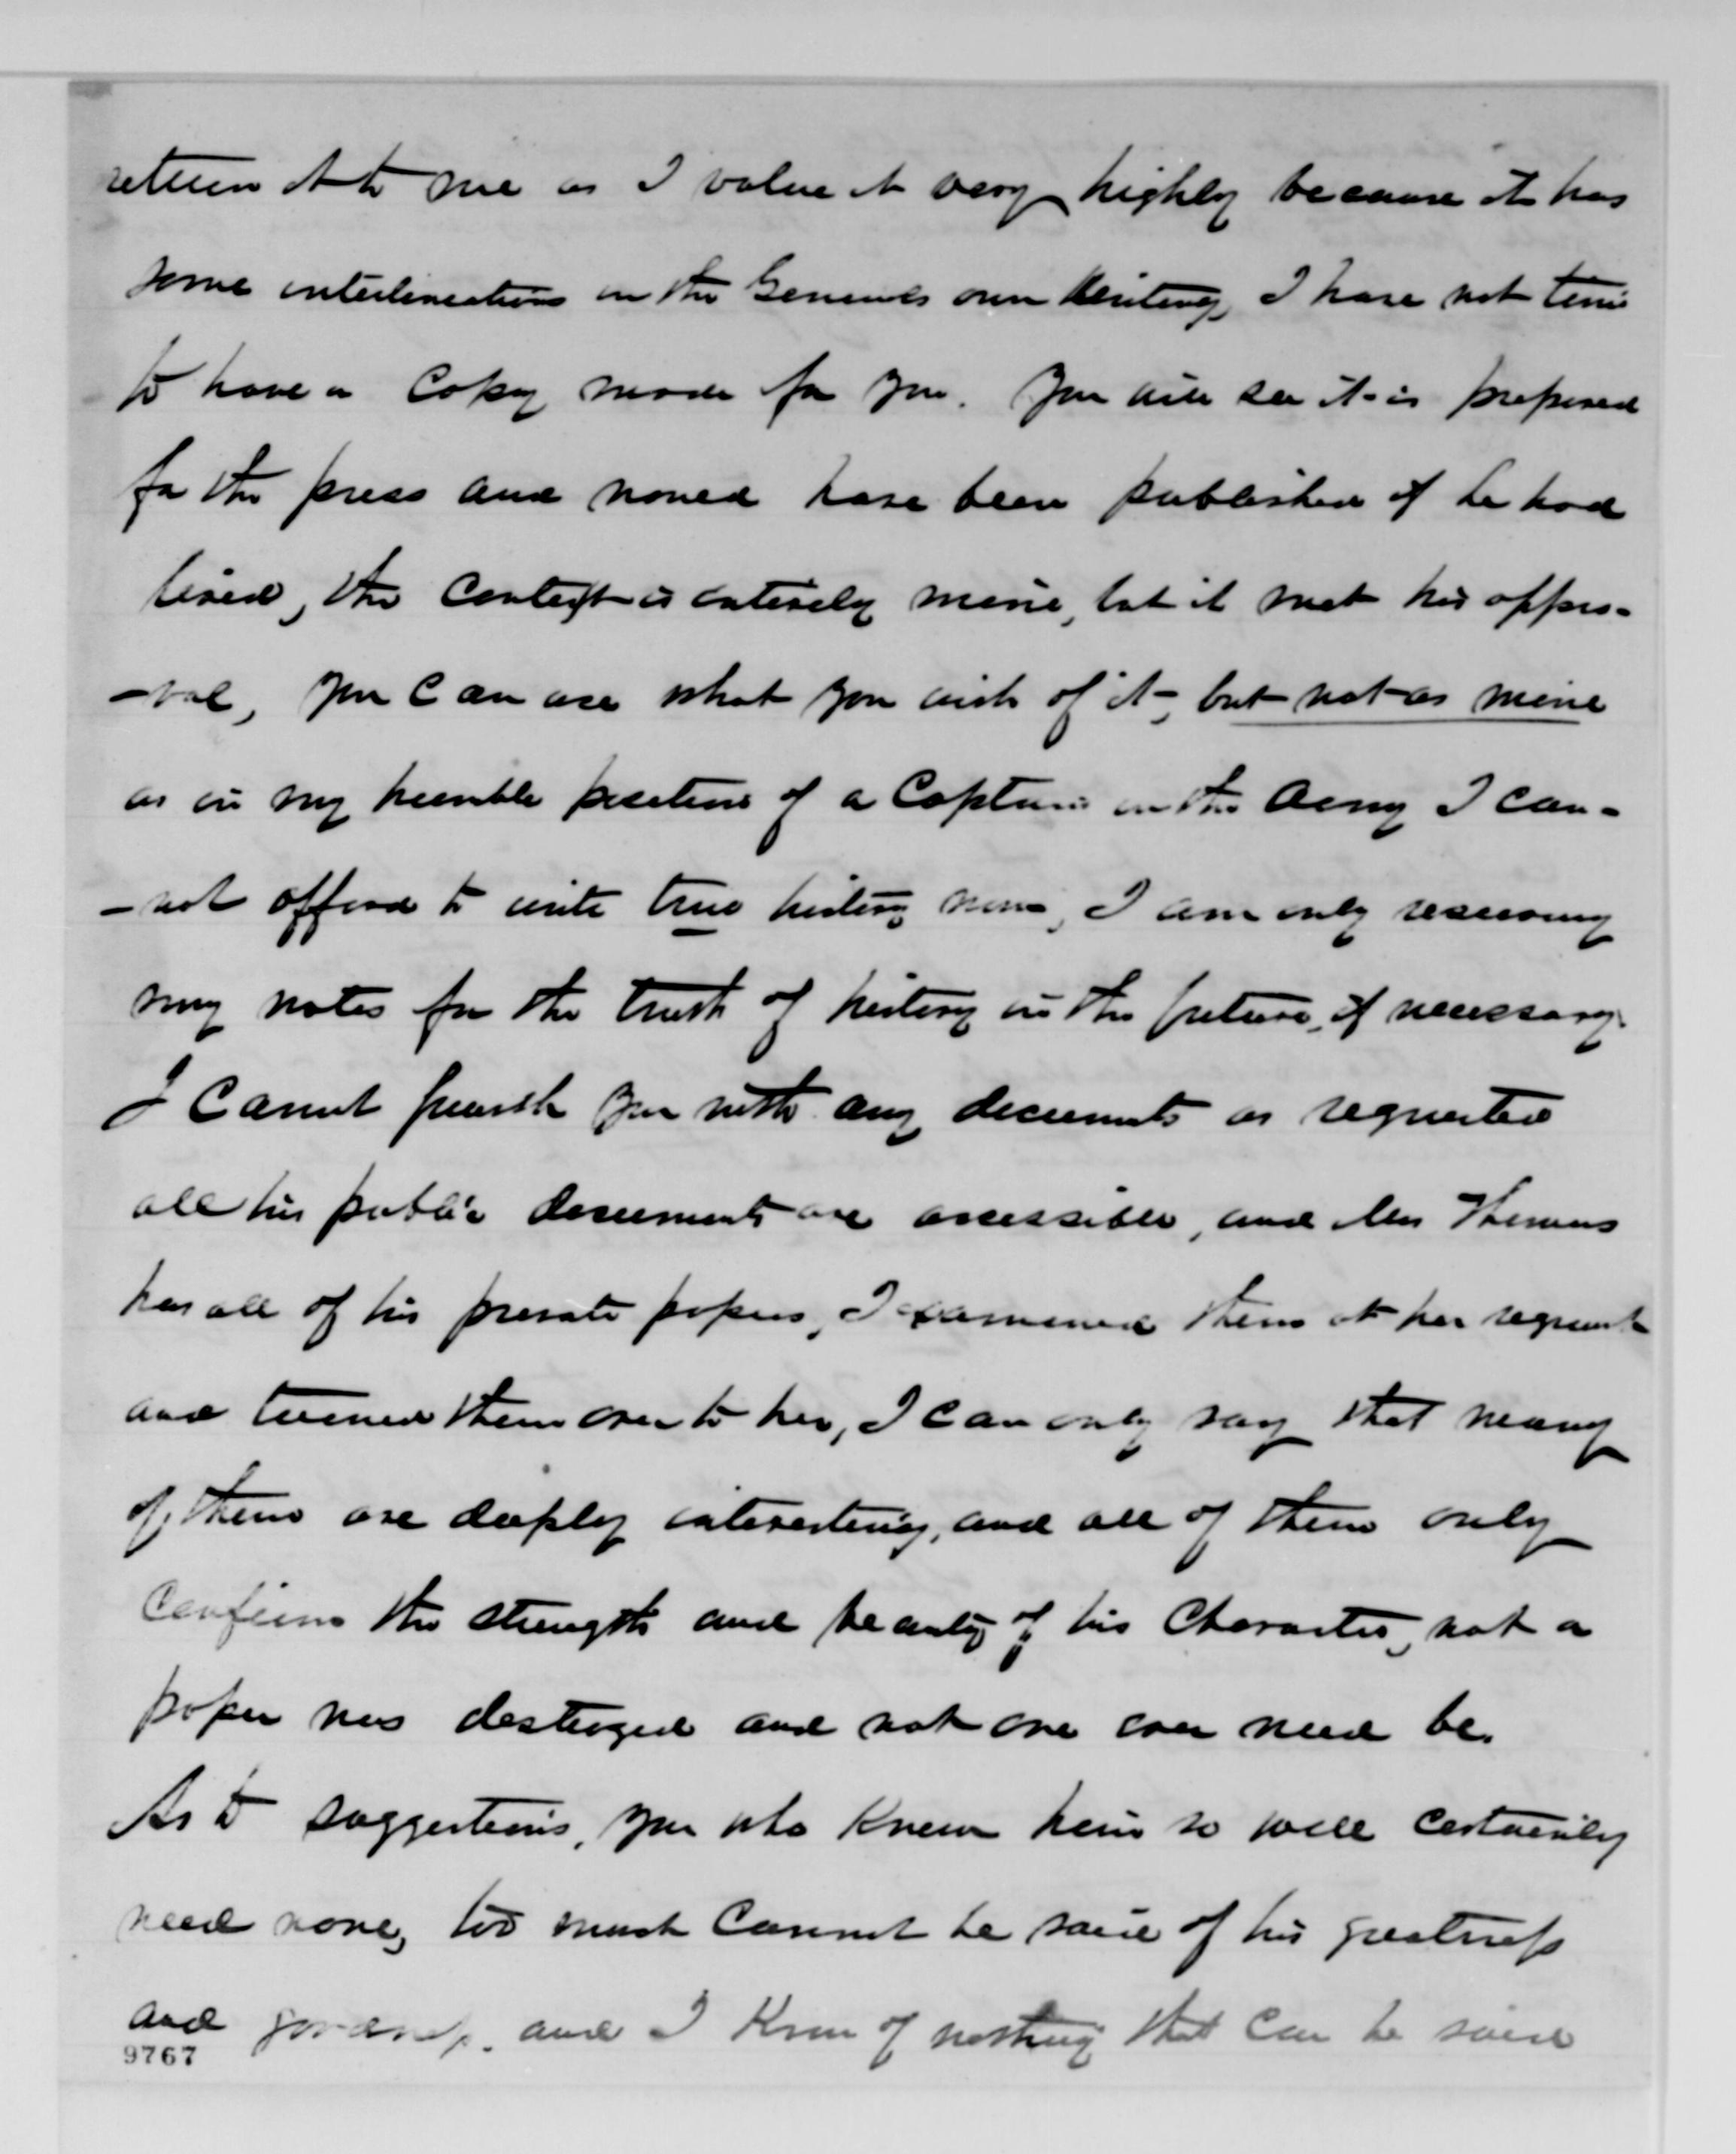 return it to me as I value it very highly because it has
some interlineations in the Generals own writing, I have not time
to have a Copy made for you. You will see it is prepared
for the press and would have been published if he had
lived, the Context is entirely mine, but it met his appro-
-val, you can use what you wish of it, but not as mine
as in my humble position of a Captain in the Army I can-
-not afford to write true history now, I am only reserving
my notes for the truth of history in the future, if necessary.
I Cannot furnish you with any documents as requested
all his public documents are accessible, and Mrs Thomas
has all of his private papers, I examined them at her request
and turned them over to her, I can only say that many
of them are deeply interesting, and all of them only
Confirm the strength and beauty of his Character, not a
paper was destroyed and not one ever need be.
As to suggestions, you who knew him so well certainly
need none, too much Cannot be said of his greatness
and goodness. and I know of nothing that can be said
9767